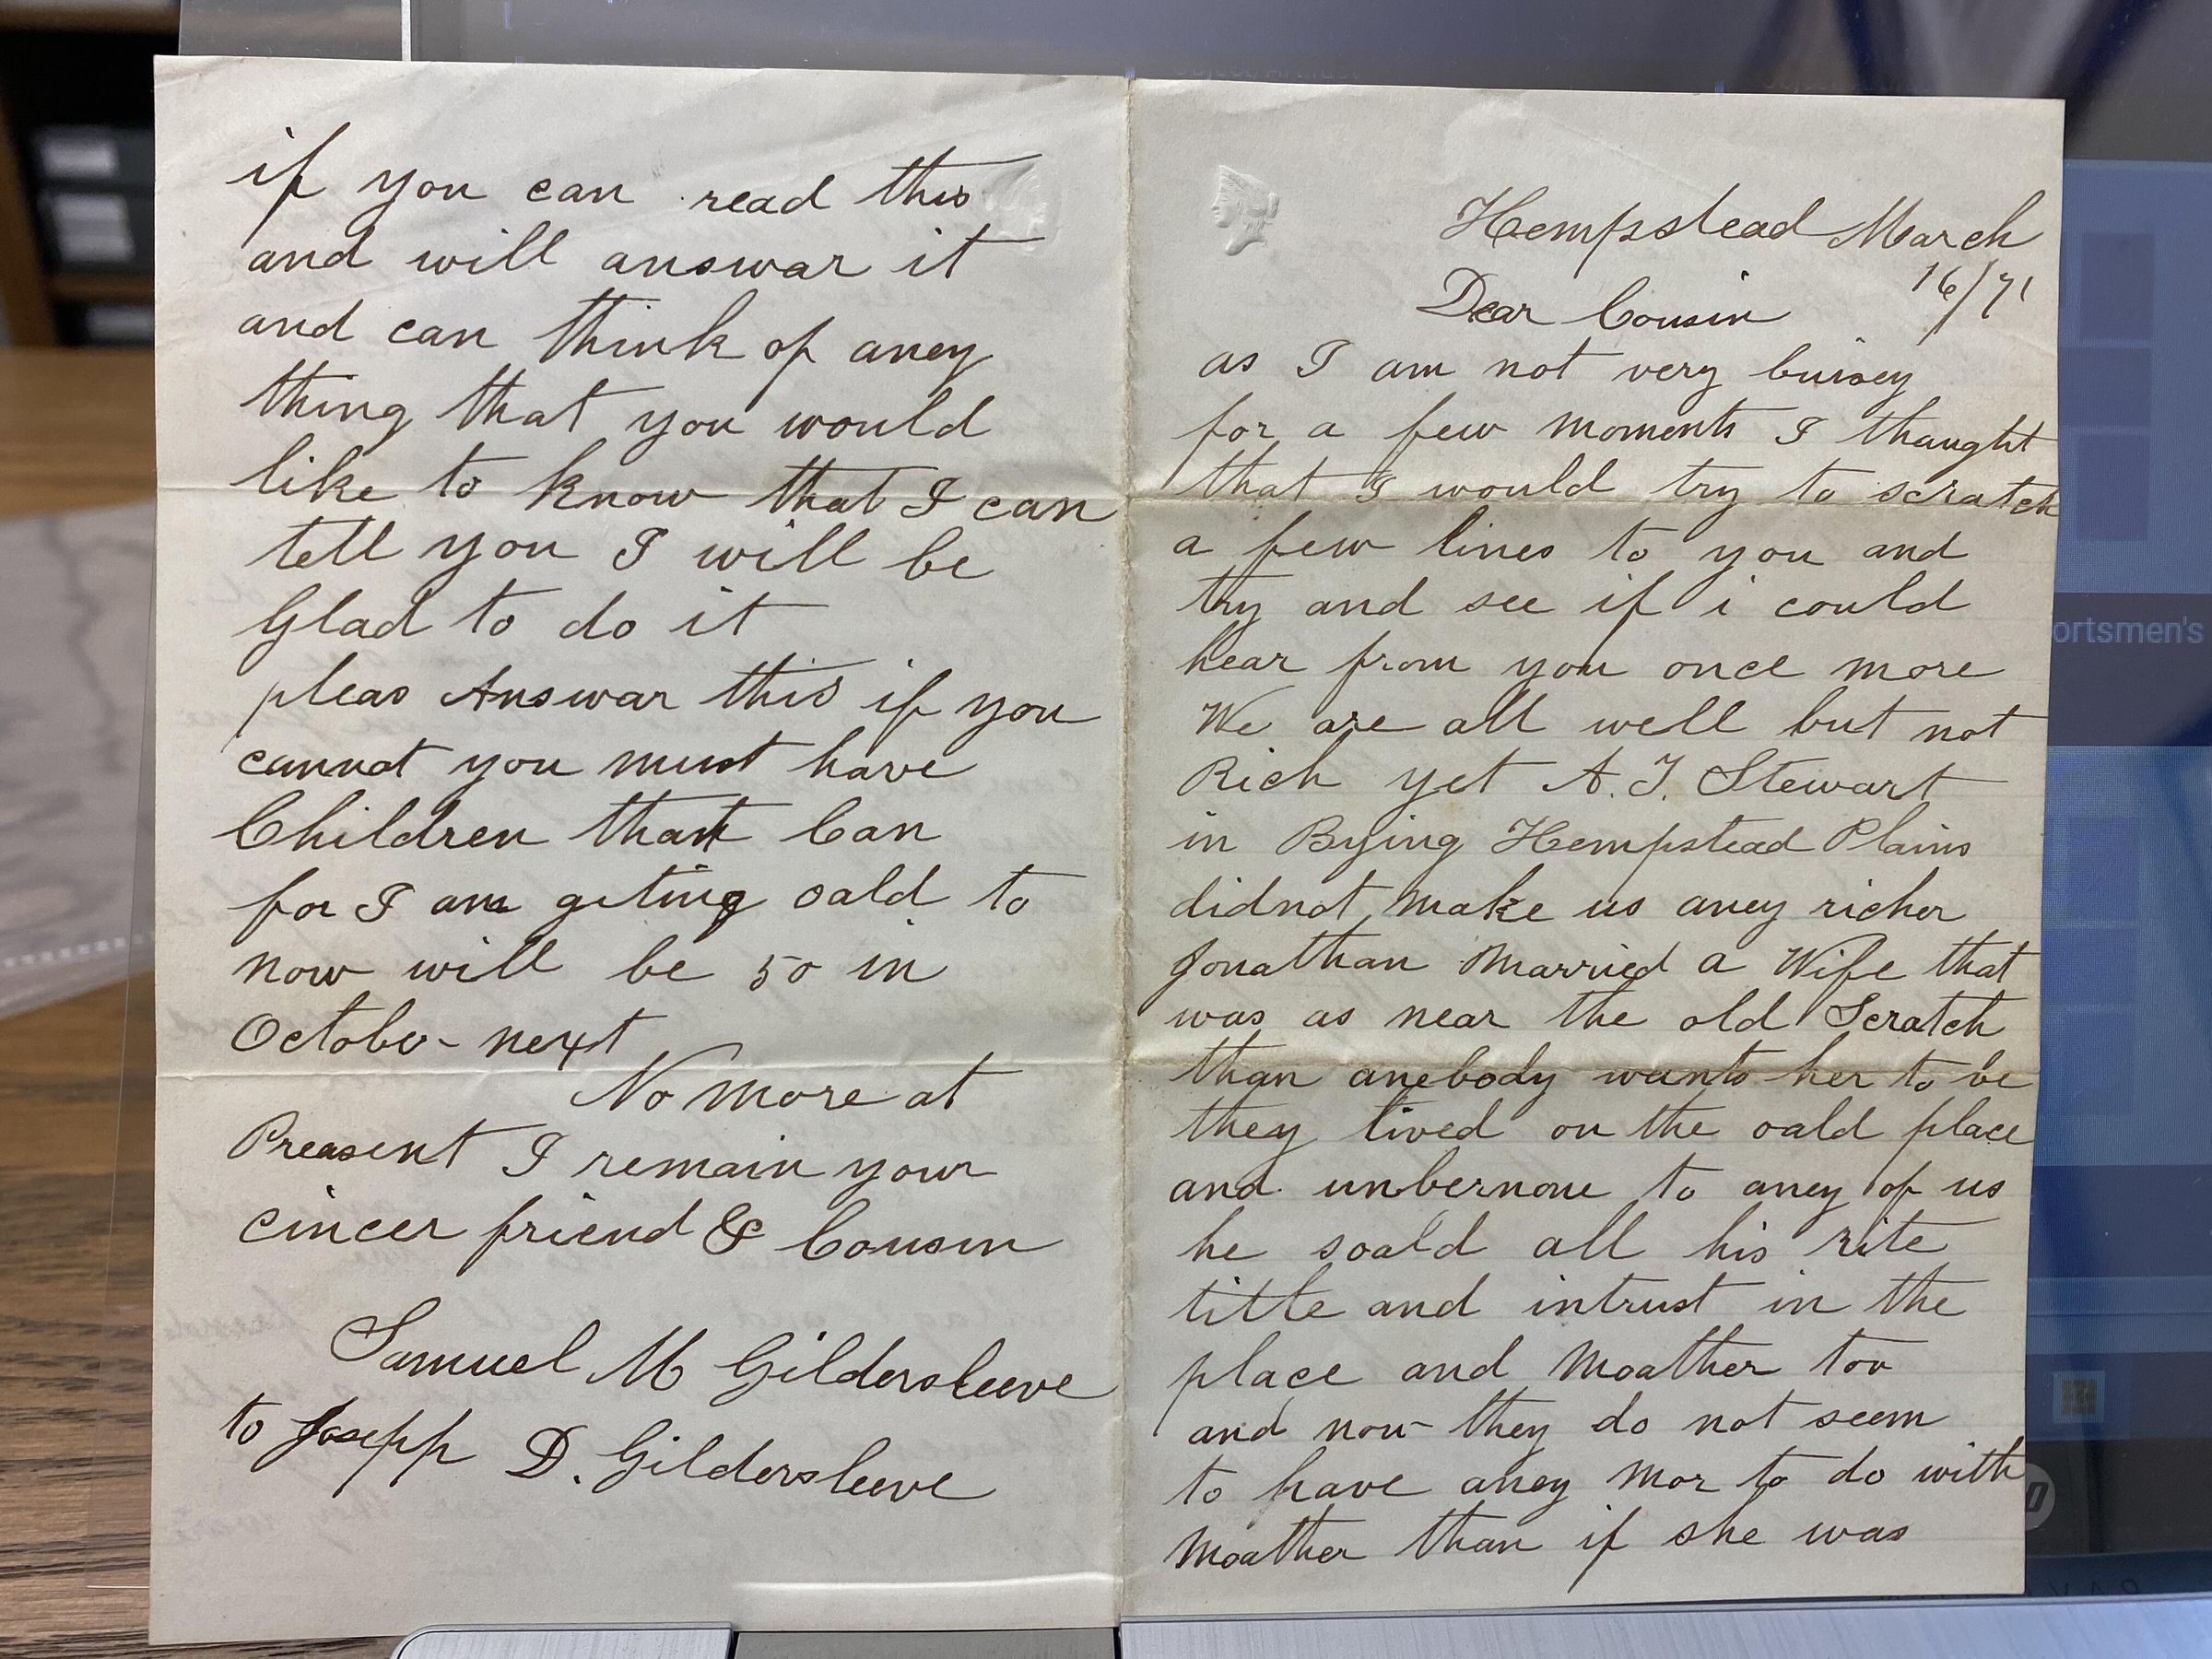 Hempstead March
16/71
Dear Cousin
as I am not very buisey
for a few moments I thaught
that I would try to scratch
a few lines to you and
try and see if i could
hear from you once more
We are all well but not
Rich yet A. T. Stewart
in Bying Hempstead Plains
didnot make us aney richer
Jonathan Married a Wife that
was as near the old Scratch
than anebody wants her to be
they lived on the oald place
and unbernone to aney of us
he soald all his rite
title and intrust in the
place and Moather too
and now they do not seem
to have aney mor to do with
Moather than if she was
if you can read this
and will answar it
and can think of aney
thing that you would
like to know that I can
tell you I will be
Glad to do it
pleas Answar this if you
cannot you must have
Children that Can
for I am geting oald to
now will be 50 in
October next
No more at
Preasent I remain your
cincer friend & Cousin
Samuel M Gildersleeve
to Josepp D. Gildersleeve
ortsmen's